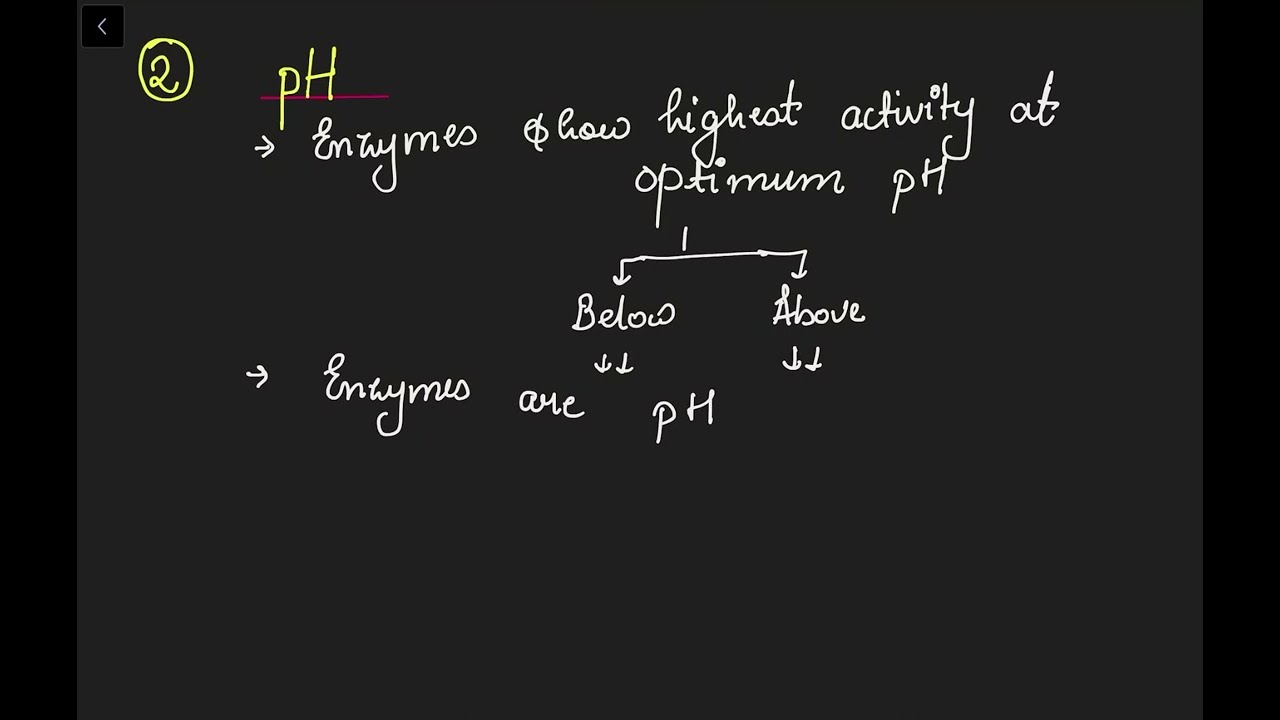 ② pH
→ Enzymes show highest activity at
optimum pH
Below Above
↓↓ ↓↓
→ Enzymes are pH